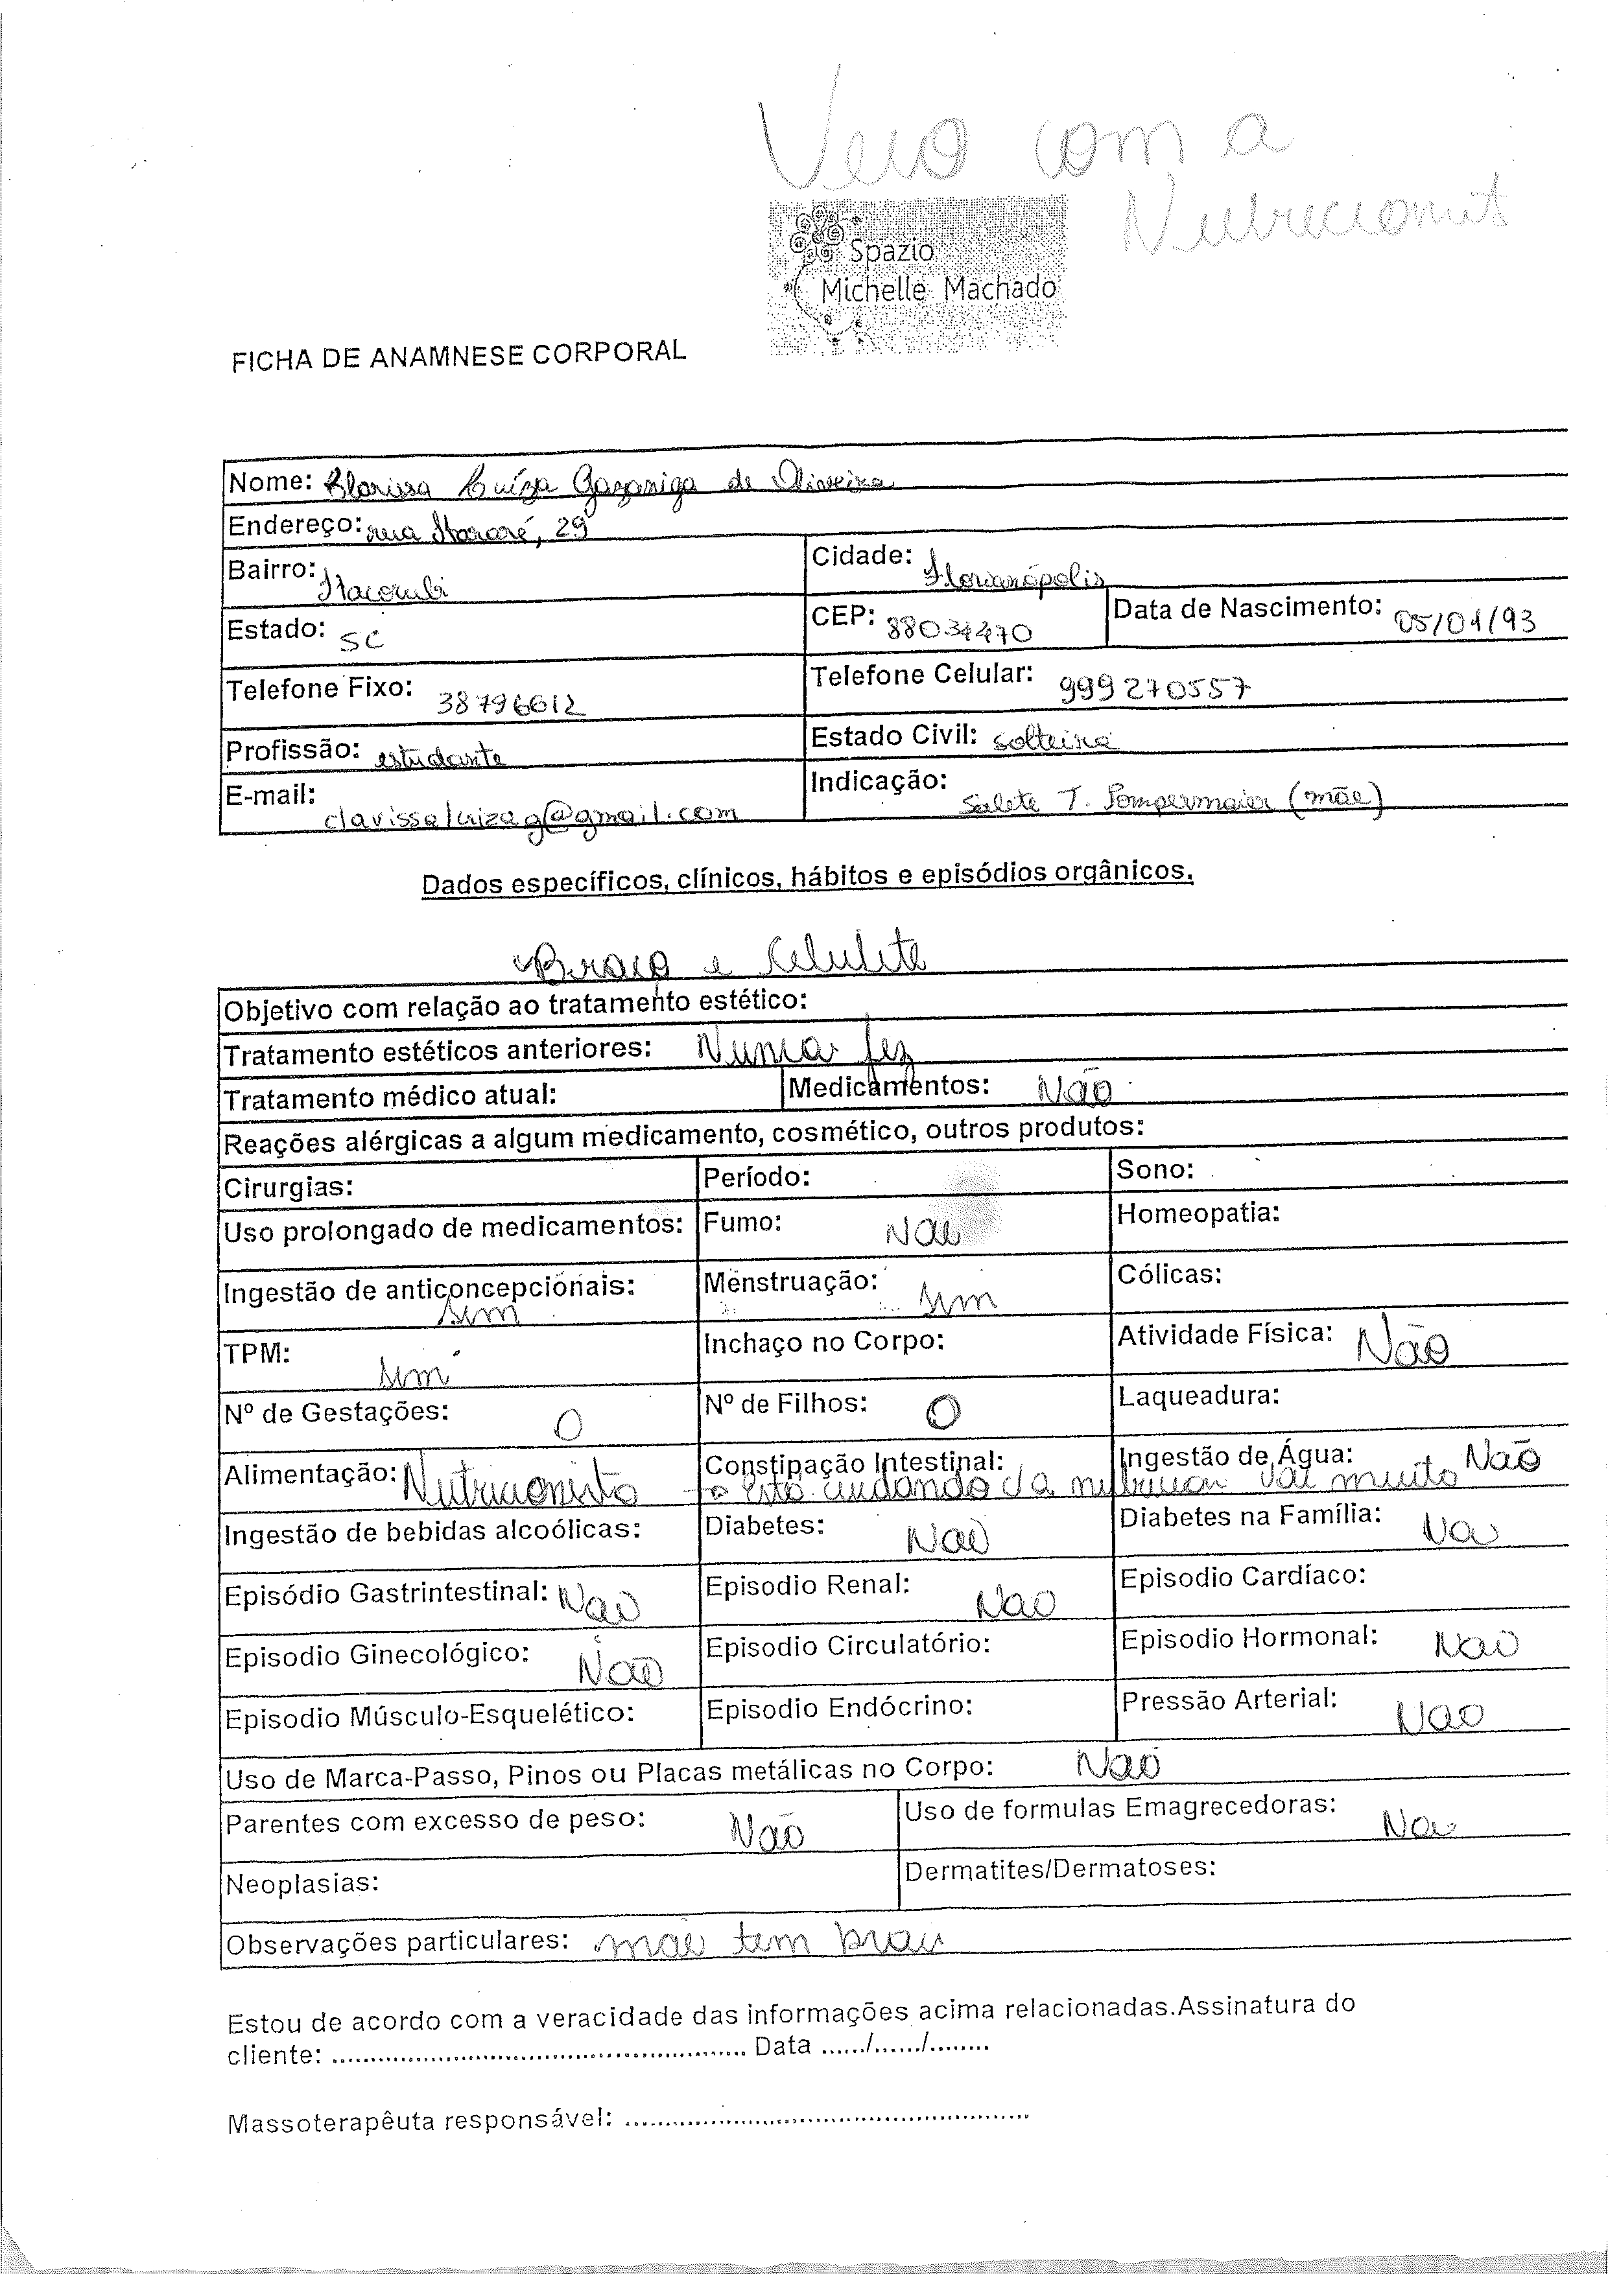 Veio com a
Nutricionist
Spazio
Michelle Machado
FICHA DE ANAMNESE CORPORAL
Nome: Clarissa Luíza Gazaniga de Oliveira
Endereço: rua Itararé, 29
Bairro: Itacorubi Cidade: Florianópolis
Estado: SC CEP: 88034470 Data de Nascimento: 05/01/93
Telefone Fixo: 38796612 Telefone Celular: 999270557
Profissão: estudante Estado Civil: solteira
E-mail: clarissaluizag@gmail.com Indicação: Salete T. Pompermaier (mãe)
Dados específicos, clínicos, hábitos e episódios orgânicos.
e Celulite
Objetivo com relação ao tratamento estético:
Tratamento estéticos anteriores: Nunca fez
Tratamento médico atual: Medicamentos: Não
Reações alérgicas a algum medicamento, cosmético, outros produtos:
Cirurgias: Período: Sono:
Uso prolongado de medicamentos: Fumo: Não Homeopatia:
Ingestão de anticoncepcionais: sim Menstruação: sim Cólicas:
TPM: sim Inchaço no Corpo: Atividade Física: Não
Nº de Gestações: 0 Nº de Filhos: 0 Laqueadura:
Alimentação: Constipação Intestinal: Ingestão de Água: Não
vai muito
Ingestão de bebidas alcoólicas: Diabetes: Não Diabetes na Família: Não
Episódio Gastrintestinal: Não Episodio Renal: Não Episodio Cardíaco:
Episodio Ginecológico: Não Episodio Circulatório: Episodio Hormonal: Não
Episodio Músculo-Esquelético: Episodio Endócrino: Pressão Arterial: Não
Uso de Marca-Passo, Pinos ou Placas metálicas no Corpo: Não
Parentes com excesso de peso: Não Uso de formulas Emagrecedoras: Não
Neoplasias: Dermatites/Dermatoses:
Observações particulares: mãe tem
Estou de acordo com a veracidade das informações acima relacionadas.Assinatura do
cliente: .................................................... Data ....../....../........
Massoterapêuta responsável: ....................................................